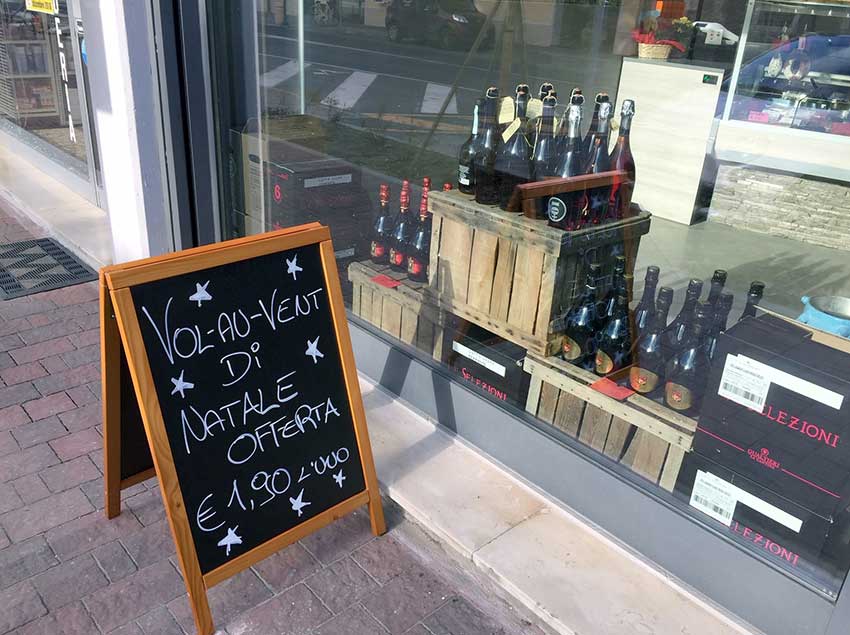 VOL-AU-VENT
DI
NATALE
OFFERTA
€ 1,90 L'UNO
SELEZIONI
SELEZIONI
GUALTIERI
SELEZIONI
6